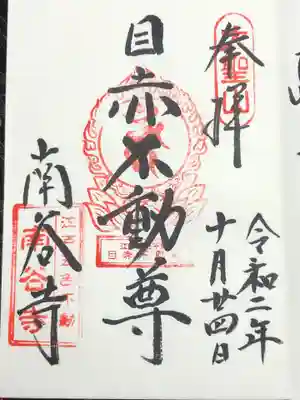 奉拝
令和二年
十月廿四日
目赤不動尊
南谷寺
江戸五色不動
南谷寺